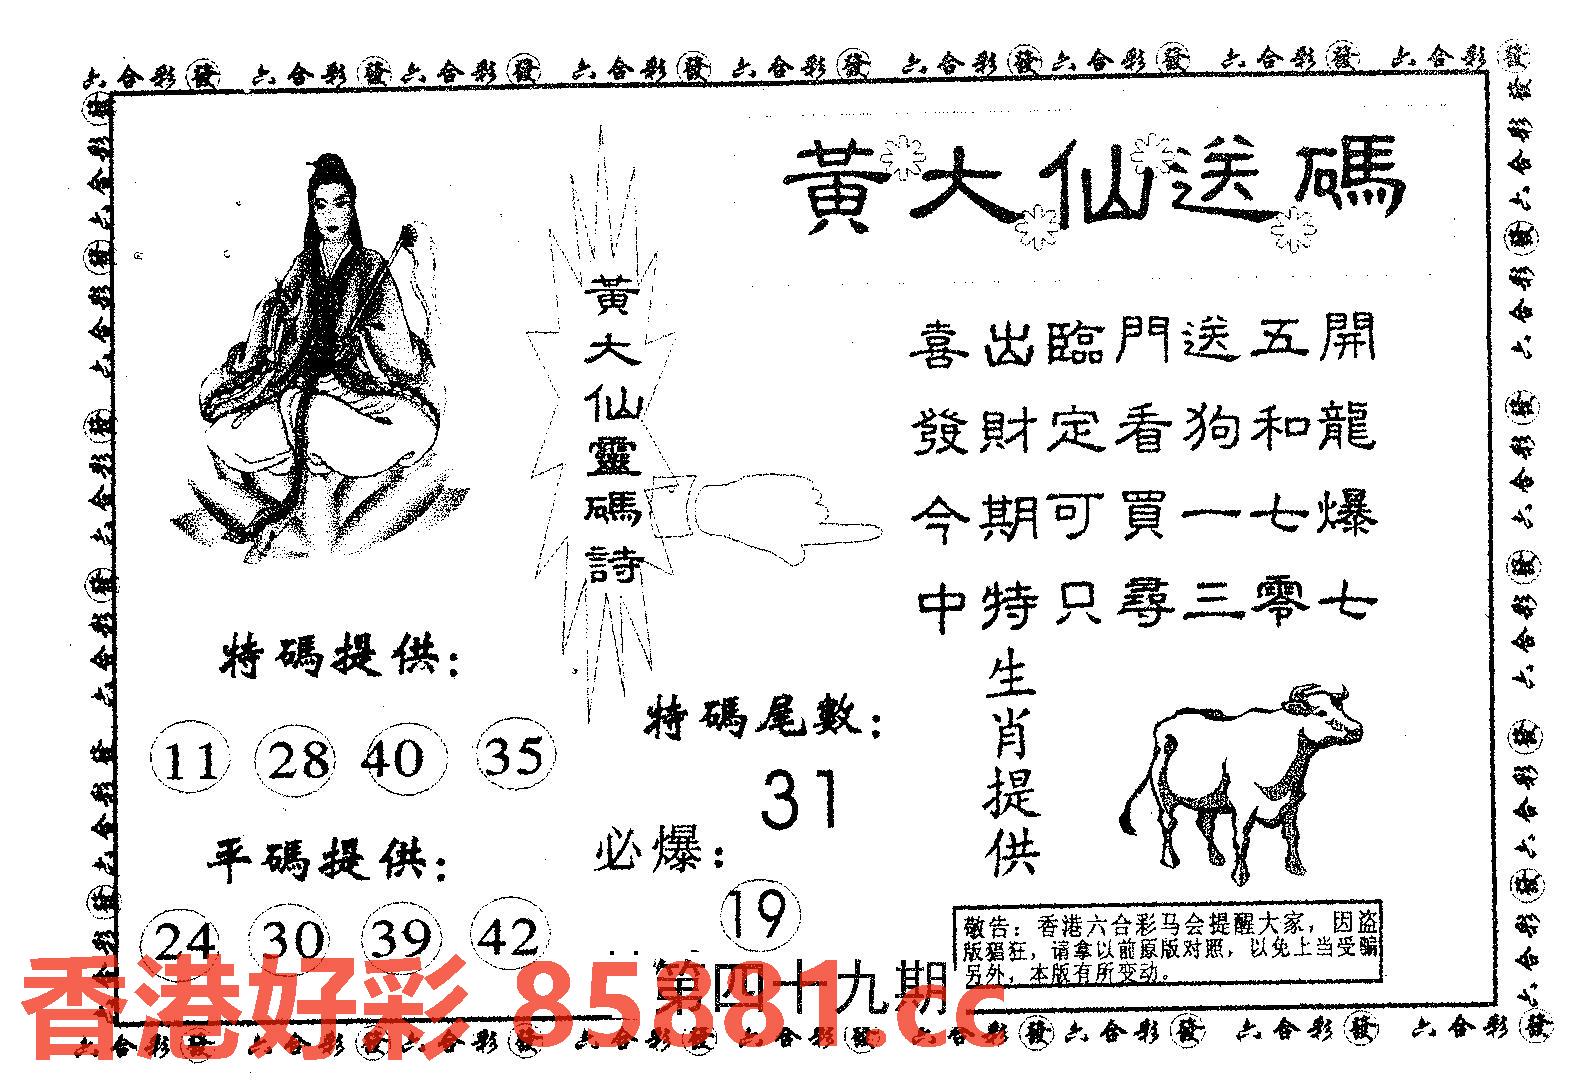 六合彩發 六合彩發 六合彩發 六合彩發 六合彩發 六合彩發 六合彩發 六合彩發 六合彩發
黃大仙送碼
黃大仙靈碼詩
喜出臨門送五開
發財定看狗和龍
今期可買一七爆
中特只尋三零七
特碼提供：
11 28 40 35
平碼提供：
24 30 39 42
特碼尾數：
31
必爆：
19
生肖提供
敬告：香港六合彩马会提醒大家，因盗
版猖狂，请拿以前原版对照，以免上当受骗
另外，本版有所变动。
第四十九期
香港好彩 85881.cc
六合彩發 六合彩發 六合彩發 六合彩發 六合彩發 六合彩發 六合彩發 六合彩發 六合彩發